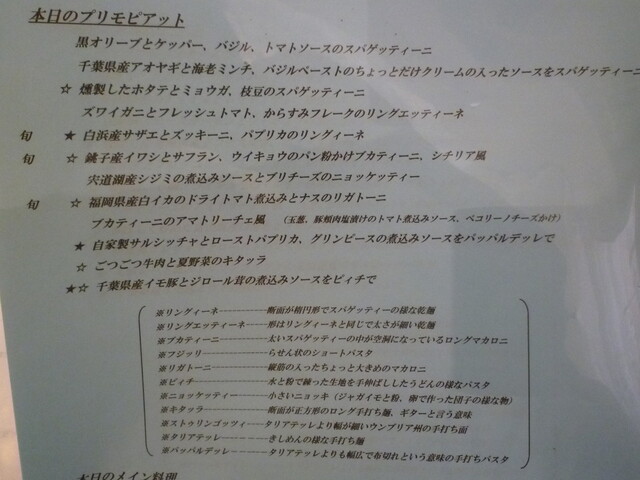 本日のプリモピアット
黒オリーブとケッパー、バジル、トマトソースのスパゲッティーニ
千葉県産アオヤギと海老ミンチ、バジルペーストのちょっとだけクリームの入ったソースをスパゲッティーニ
☆ 燻製したホタテとミョウガ、枝豆のスパゲッティーニ
ズワイガニとフレッシュトマト、からすみフレークのリングエッティーネ
旬 ★ 白浜産サザエとズッキーニ、パプリカのリングィーネ
旬 ☆ 銚子産イワシとサフラン、ウイキョウのパン粉かけブカティーニ、シチリア風
宍道湖産シジミの煮込みソースとブリチーズのニョッケッティー
旬 ☆ 福岡県産白イカのドライトマト煮込みとナスのリガトーニ
ブカティーニのアマトリーチェ風 （玉葱、豚頬肉塩漬けのトマト煮込みソース、ペコリーノチーズかけ）
★ 自家製サルシッチャとローストパプリカ、グリンピースの煮込みソースをパッパルデッレで
☆ ごつごつ牛肉と夏野菜のキタッラ
★☆ 千葉県産イモ豚とジロール茸の煮込みソースをピィチで
※リングィーネ----------断面が楕円形でスパゲッティーの様な乾麺
※リングエッティーネ------形はリングィーネと同じで太さが細い乾麺
※ブカティーニ----------太いスパゲッティーの中が空洞になっているロングマカロニ
※フジッリ-------------らせん状のショートパスタ
※リガトーニ-----------縦筋の入ったちょっと大きめのマカロニ
※ピィチ--------------水と粉で練った生地を手伸ばししたうどんの様なパスタ
※ニョッケッティー-------小さいニョッキ（ジャガイモと粉、卵で作った団子の様な物）
※キタッラ-------------断面が正方形のロング手打ち麺、ギターと言う意味
※ストゥリンゴッツィ-----タリアテッレより幅が細いウンブリア州の手打ち面
※タリアテッレ---------きしめんの様な手打ち麺
※パッパルデッレ--------タリアテッレよりも幅広で布切れという意味の手打ちパスタ
本日のメイン料理